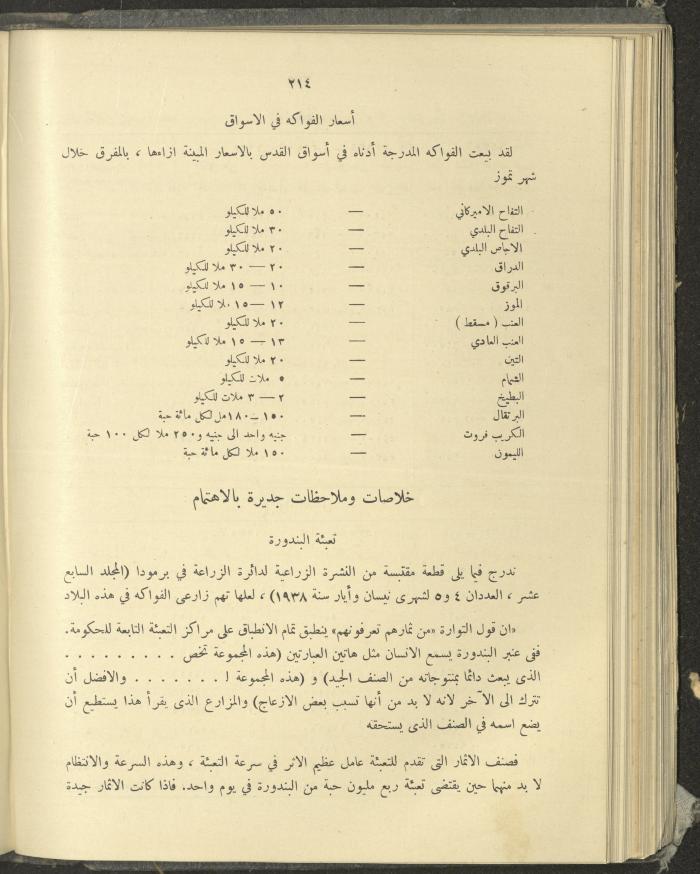 ٢١٤
أسعار الفواكه في الاسواق
لقد بيعت الفواكه المدرجة أدناه في أسواق القدس بالاسعار المبينة ازاءها ، بالمفرق خلال
شهر تموز
التفاح الاميركاني — ٥٠ ملا للكيلو
التفاح البلدي — ٣٠ ملا للكيلو
الاجاص البلدي — ٢٠ ملا للكيلو
الدراق — ٢٠ — ٣٠ ملا للكيلو
البرقوق — ١٠ — ١٥ ملا للكيلو
الموز — ١٢ —١٥ ملا للكيلو
العنب ( مسقط ) — ٢٠ ملا للكيلو
العنب العادي — ١٣ — ١٥ ملا للكيلو
التين — ٢٠ ملا للكيلو
الشمام — ٥ ملات للكيلو
البطيخ — ٢ — ٣ ملات للكيلو
البرتقال — ١٥٠ —١٨٠مل لكل مائة حبة
الكريب فروت — جنيه واحد الى جنيه و٢٥٠ ملا لكل ١٠٠ حبة
الليمون — ١٥٠ ملا لكل مائة حبة
خلاصات وملاحظات جديرة بالاهتمام
تعبئة البندورة
ندرج فيما يلى قطعة مقتبسة من النشرة الزراعية لدائرة الزراعة في برمودا (المجلد السابع
عشر ، العددان ٤ و٥ لشهرى نيسان وأيار سنة ١٩٣٨) ، لعلها تهم زارعى الفواكه في هذه البلاد
«ان قول التوراة «من ثمارهم تعرفونهم» ينطبق تمام الانطباق على مراكز التعبئة التابعة للحكومة.
ففى عنبر البندورة يسمع الانسان مثل هاتين العبارتين (هذه المجموعة تخص . . . . . . . . .
الذى يبعث دائما بمنتوجاته من الصنف الجيد) و (هذه المجموعة لـ . . . . . . . والافضل أن
تترك الى الآخر لانه لا بد من أنها تسبب بعض الازعاج) والمزارع الذى يقرأ هذا يستطيع أن
يضع اسمه في الصنف الذى يستحقه
فصنف الاثمار التى تقدم للتعبئة عامل عظيم الاثر في سرعة التعبئة ، وهذه السرعة والانتظام
لا بد منهما حين يقتضى تعبئة ربع مليون حبة من البندورة في يوم واحد. فاذا كانت الاثمار جيدة